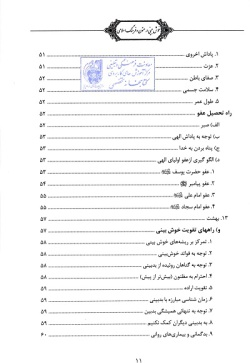 خوش بینی در متون و فرهنگ اسلامی
۱. پاداش اخروی ۵۱
۲. عزت ۵۱
۳. صفای باطن ۵۲
۴. سلامت جسمی ۵۲
۵. طول عمر ۵۲
راه تحصیل عفو ۵۲
الف) صبر ۵۲
ب) توجه به پاداش الهی ۵۲
ج) پناه بردن به خدا ۵۳
د) الگو گیری ازعفو اولیای الهی ۵۳
۱. عفو حضرت یوسف ۵۳
۲. عفو پیامبر ۵۴
۳. عفو امام علی ۵۵
۴. عفو امام سجاد ۵۵
۱۳. بهشت ۵۷
و) راههای تقویت خوش بینی ۵۷
۱. تمرکز بر ریشه‌های خوش بینی ۵۷
۲. توجه به فوائد خوش‌بینی ۵۸
۳. توجه به گناهان روئیده از بدبینی ۵۸
۴. احترام به مظنون (بیش‌تر از پیش) ۵۸
۵. تقویت اراده ۵۹
۶. زمان شناسی مبارزه با بدبینی ۵۹
۷. توجه به تنهائی همیشگی بدبین ۵۹
۸. به بدبینی دیگران کمک نکنیم ۵۹
۹. بدگمانی و بیماری‌های روانی ۶۰
۱۱